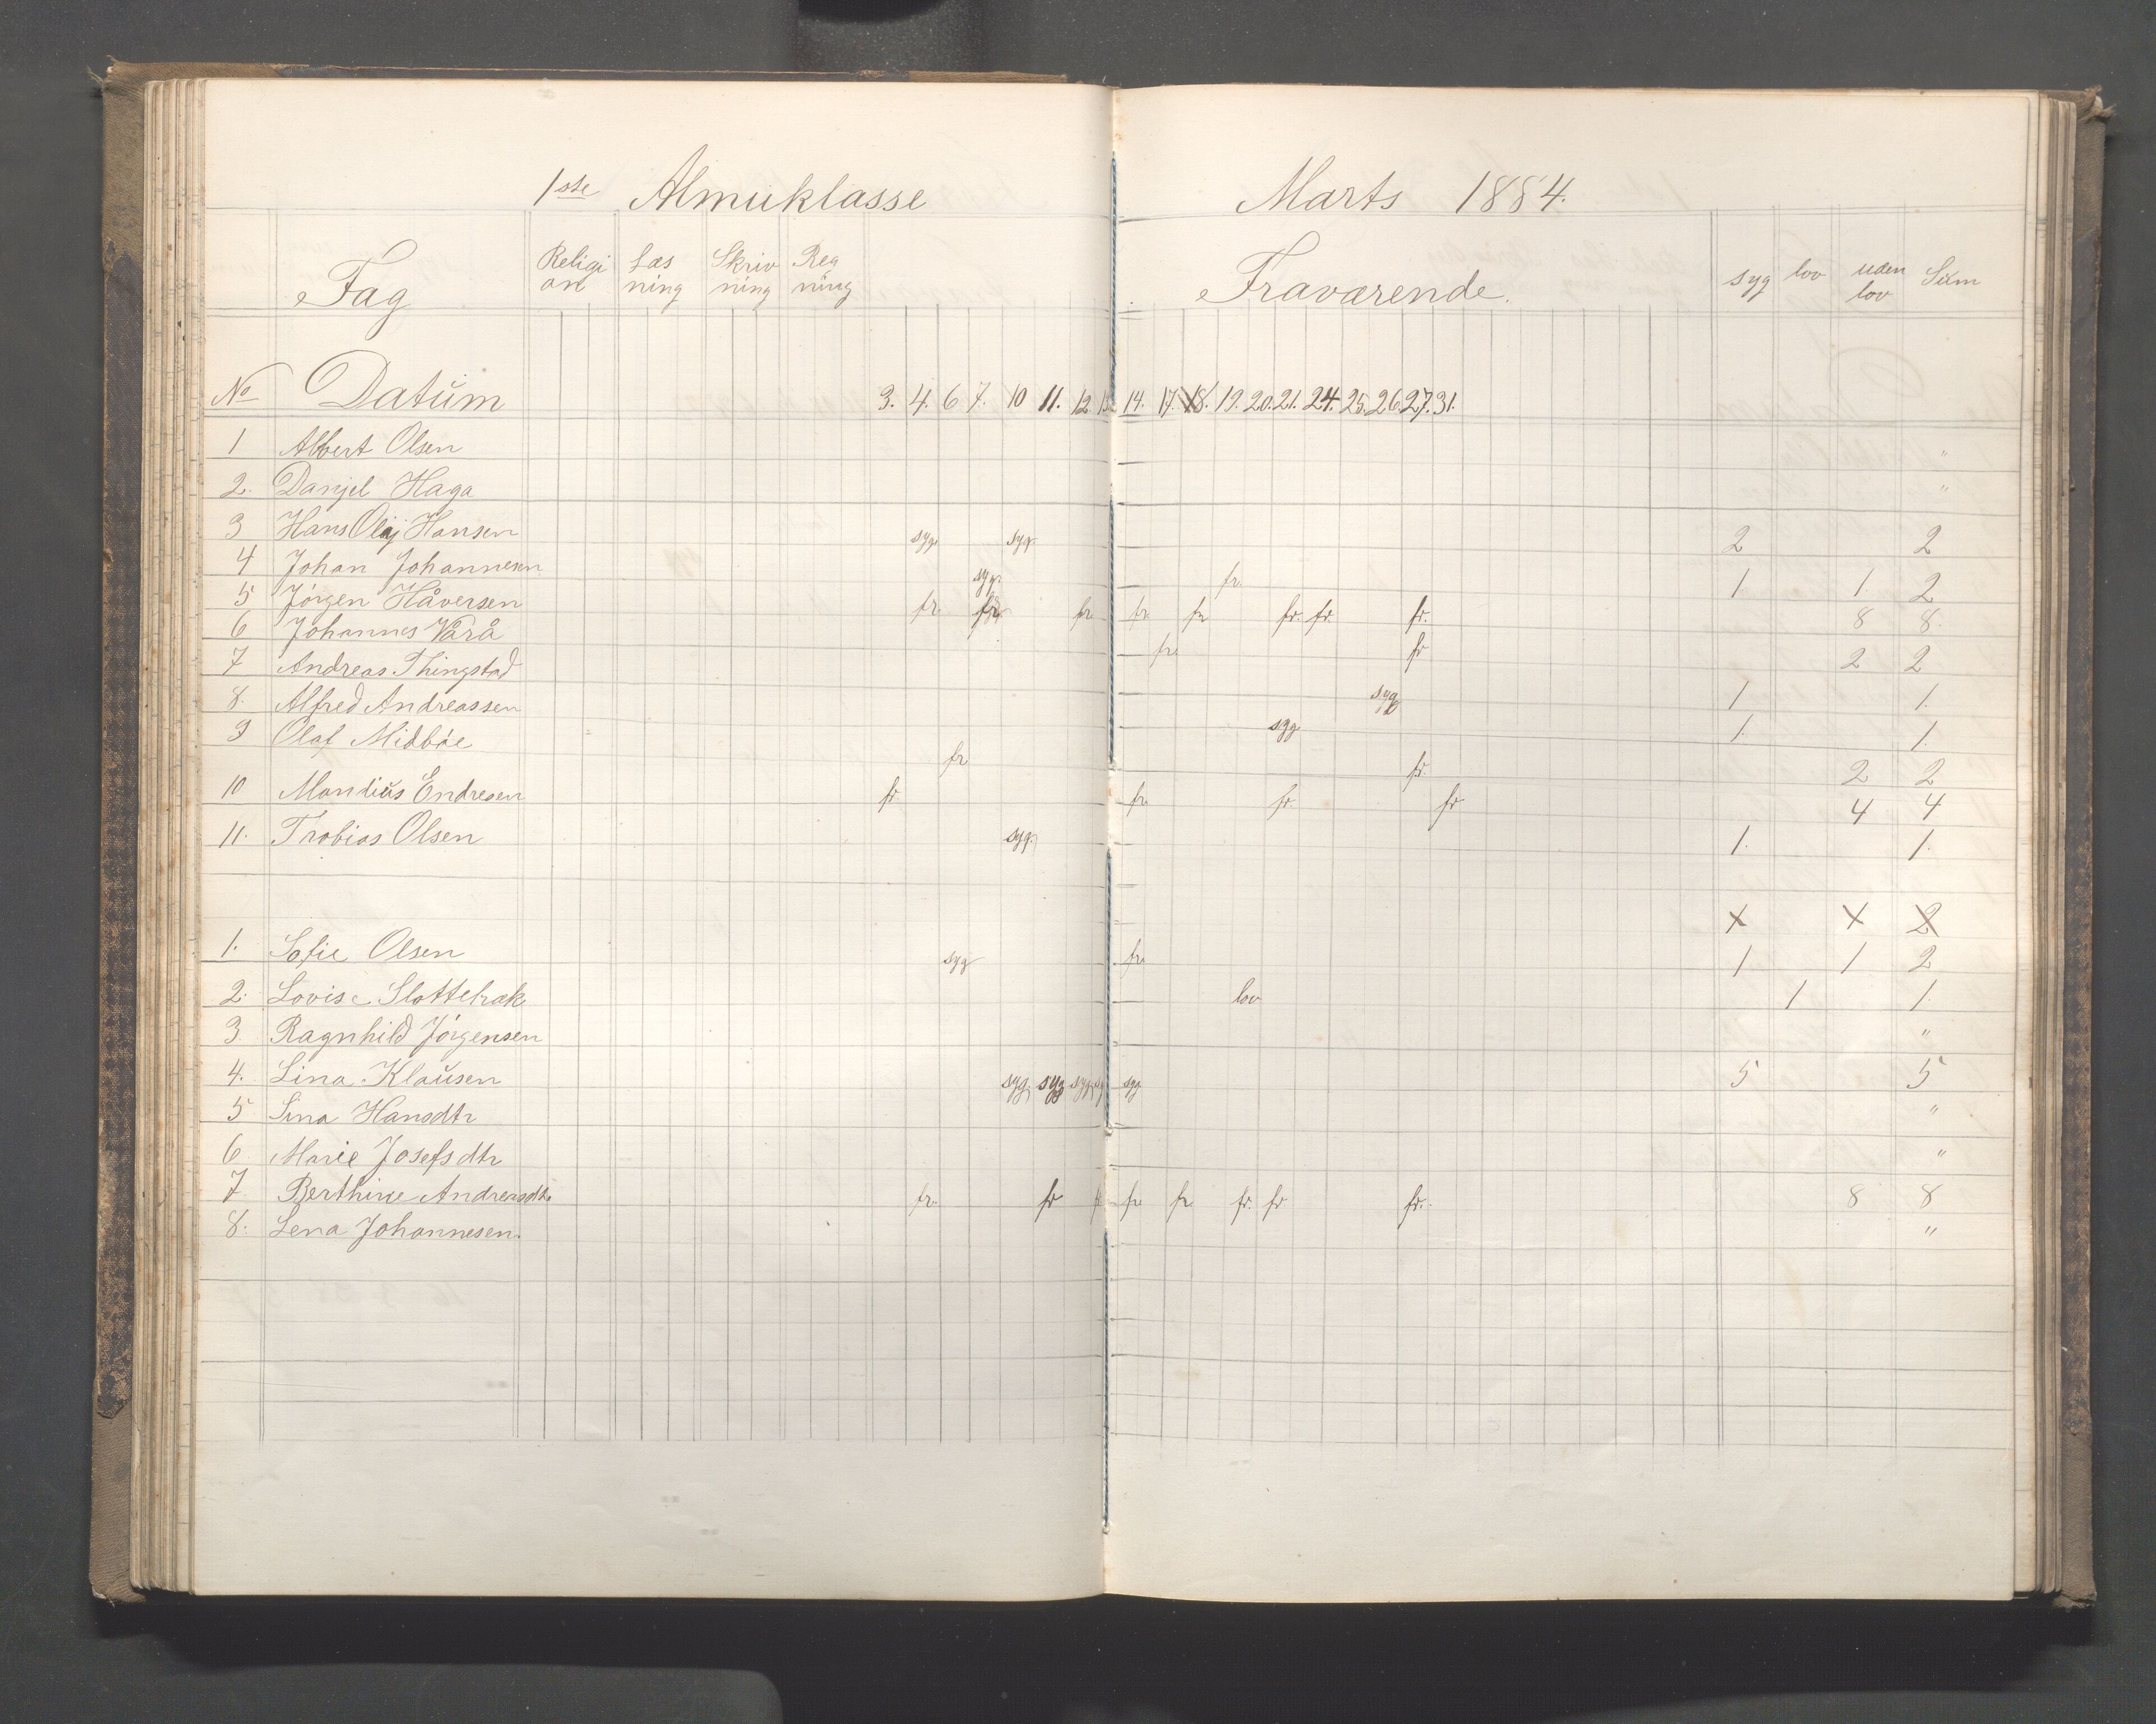 1ste Almuklasse Marts 1884.
Fag Religi on Læs ning Skriv ning Reg ning Fraværende. syg lov uden lov Sum
No Datum 3. 4. 6 7. 10 11. 12 14. 17. 18. 19. 20. 21. 24. 25. 26. 27. 31.
1 Albert Olsen "
2. Danjel Haga "
3 Hans Olaj Hansen syg. syg. 2 2
4 Johan Johannesen syg. fr. 1 1 2
5 Jörgen Håversen fr. fr. fr. fr. fr fr. fr. fr. 8 8.
6 Johannes Vårå fr. fr 2 2
7 Andreas Thingstad syg 1 1.
8. Alfred Andreassen syg 1. 1.
9 Olaf Midböe fr fr. 2 2
10 Mandius Endresen fr. fr. fr. fr 4 4
11. Trobias Olsen syg. 1. 1.
2
1. Sofie Olsen syg fr. 1 1 2
2. Lovise Slottebrak lov 1 1.
3. Ragnhild Jörgensen "
4. Lina Klausen syg. syg syg. syg 5 5
5 Sina Hansdtr "
6 Marie Josefsdtr "
7 Berthine Andreasdtr fr. fr fr fr. fr. fr. fr. 8 8
8. Lena Johannesen. "